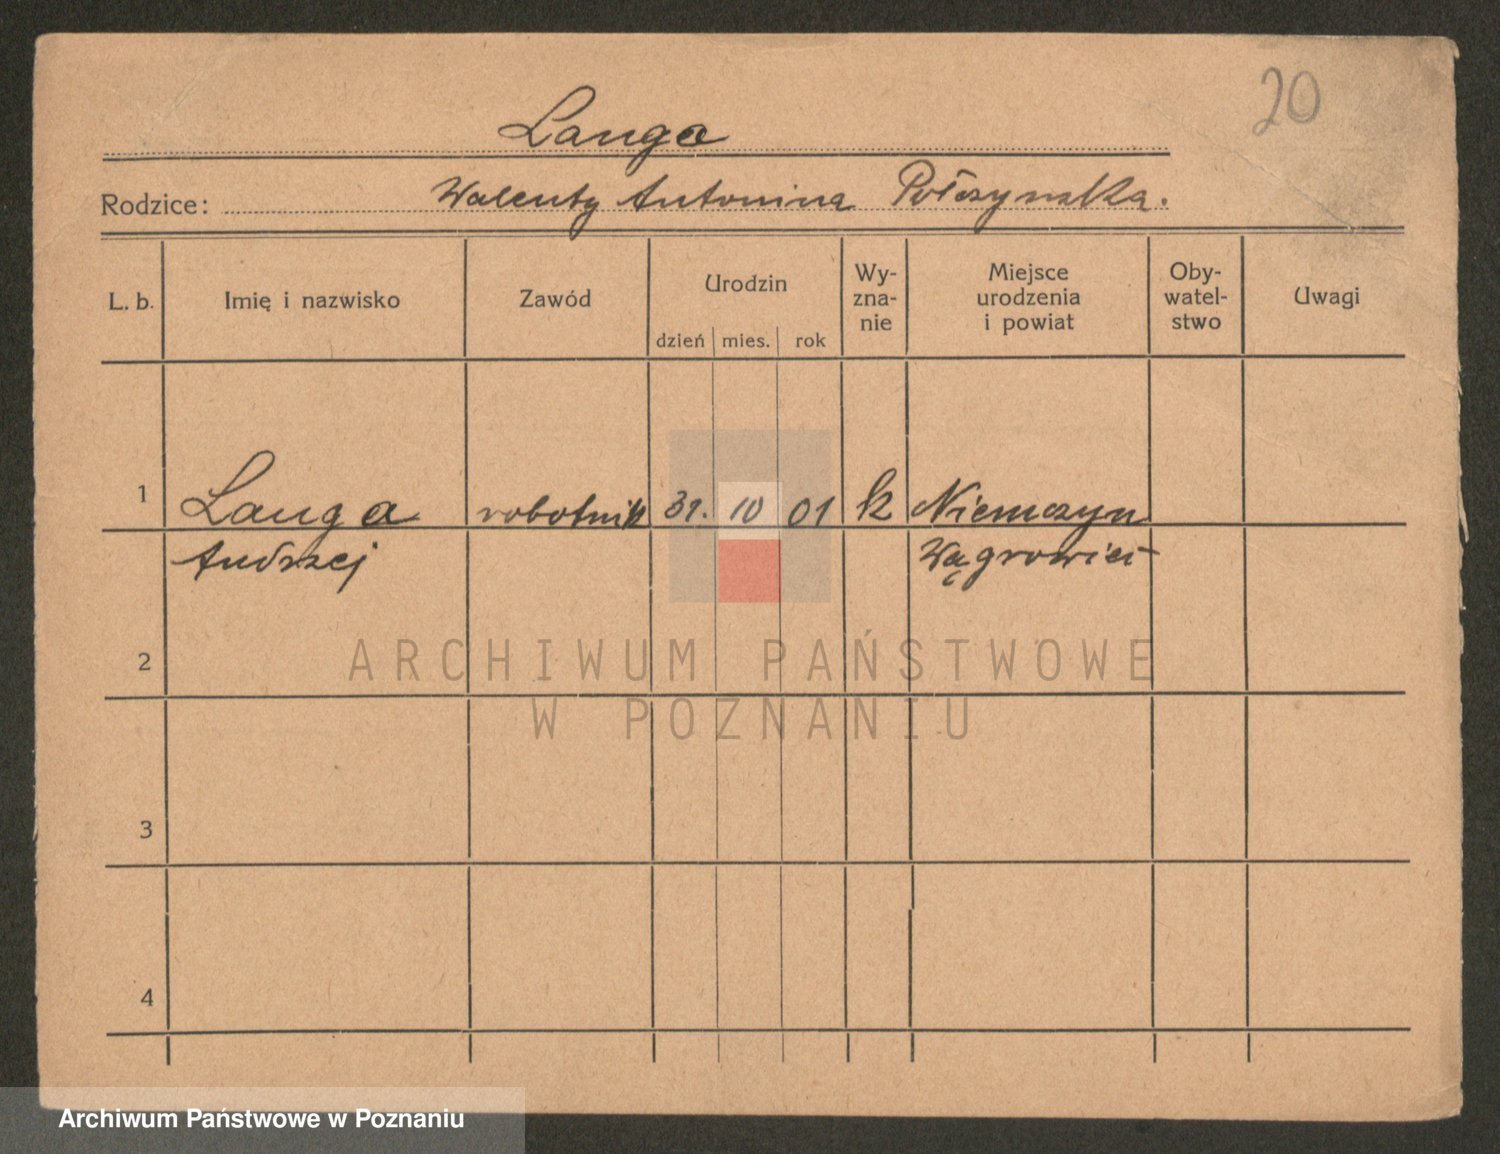 20
Langa
Rodzice: Walenty Antonina Połczynska.
L. b. Imię i nazwisko Zawód Urodzin Wy- Miejsce Oby- Uwagi
zna- urodzenia watel-
nie i powiat stwo
dzień mies. rok
1 Langa robotnik 31. 10 01 k Niemczyn
Andrzej Wągrowiec
2
ARCHIWUM PAŃSTWOWE
W POZNANIU
3
4
Archiwum Państwowe w Poznaniu